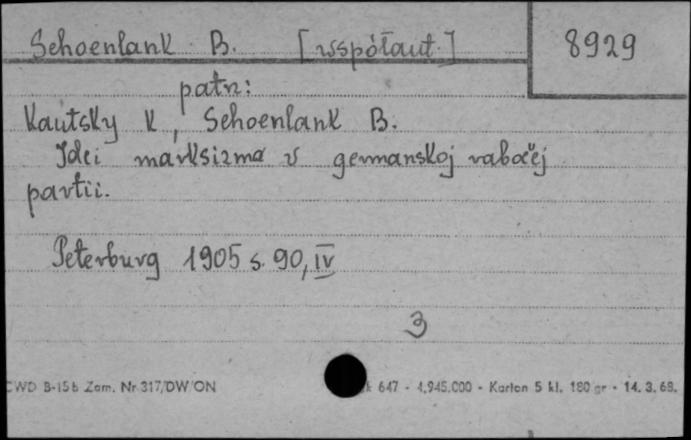 Schoenlank B. [współaut.] 8929
patrz:
Kautsky K, Schoenlank B.
Idei marksizma v germanskoj rabočej
partii.
Peterburg 1905 s. 90, IV
3
CWD B-15b Zam. Nr 317/DW/ON 647 - 4.945.000 - Karton 5 kl. 180 gr - 14. 3. 68.